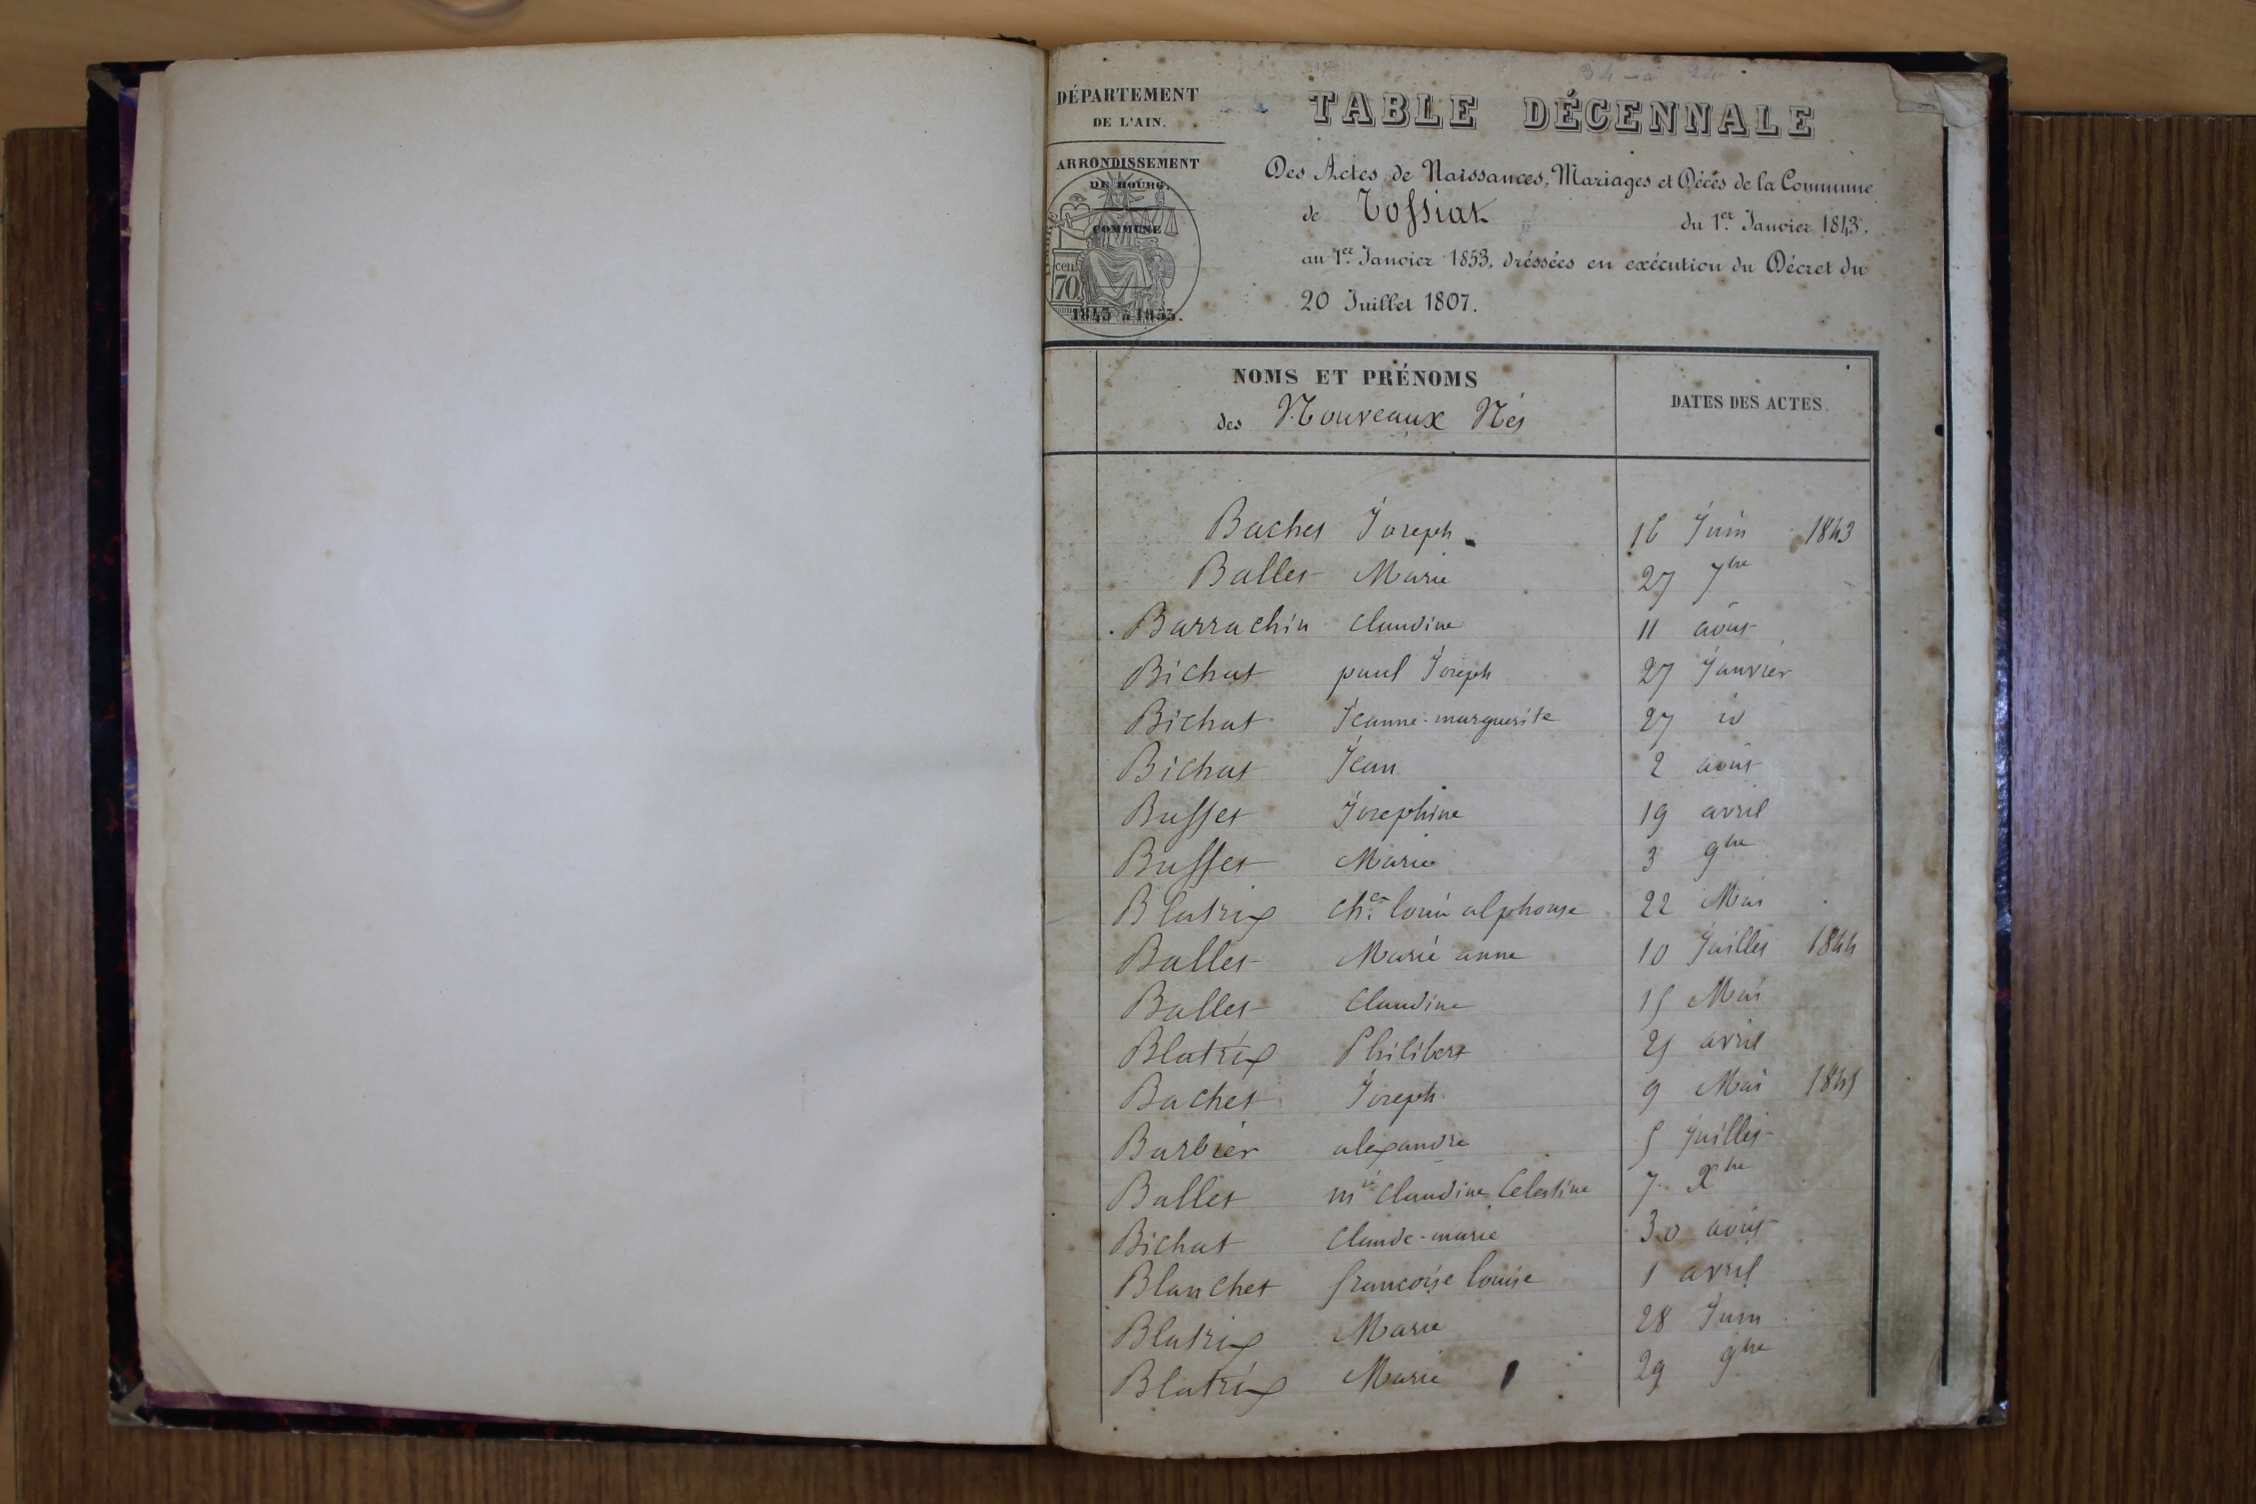 34 - a
DÉPARTEMENT
DE L'AIN.
ARRONDISSEMENT
DE BOURG.
COMMUNE
cen.
70
1843 à 1853.
TABLE DÉCENNALE
Des Actes de Naissances, Mariages et Décés de la Commune
de Tossiat du 1er. Janvier 1843.
au 1er. Janvier 1853, dréssées en exécution du Décret du
20 Juillet 1807.
NOMS ET PRÉNOMS
des Nouveaux Nés
DATES DES ACTES.
Bachet Joseph 16 Juin 1843
Ballet Marie 27 7bre
Barrachin Claudine 11 août
Bichat paul Joseph 27 Janvier
Bichat Jeanne-marguerite 27 id
Bichat Jean 2 août
Buffet Josephine 19 avril
Buffet Marie 3 9bre
Blatrix Ch.es louis alphonse 22 Mai
Ballet Marie anne 10 Juillet 1844
Ballet Claudine 15 Mai
Blatrix Philibert 25 avril
Bachet Joseph 9 Mai 1845
Barbier alexandre 5 Juillet
Ballet mie Claudine Celestine 7 Xbre
Bichat Claude-marie 30 août
Blanchet francoise louise 1 avril
Blatrix Marie 28 Juin
Blatrix Marie 29 9bre